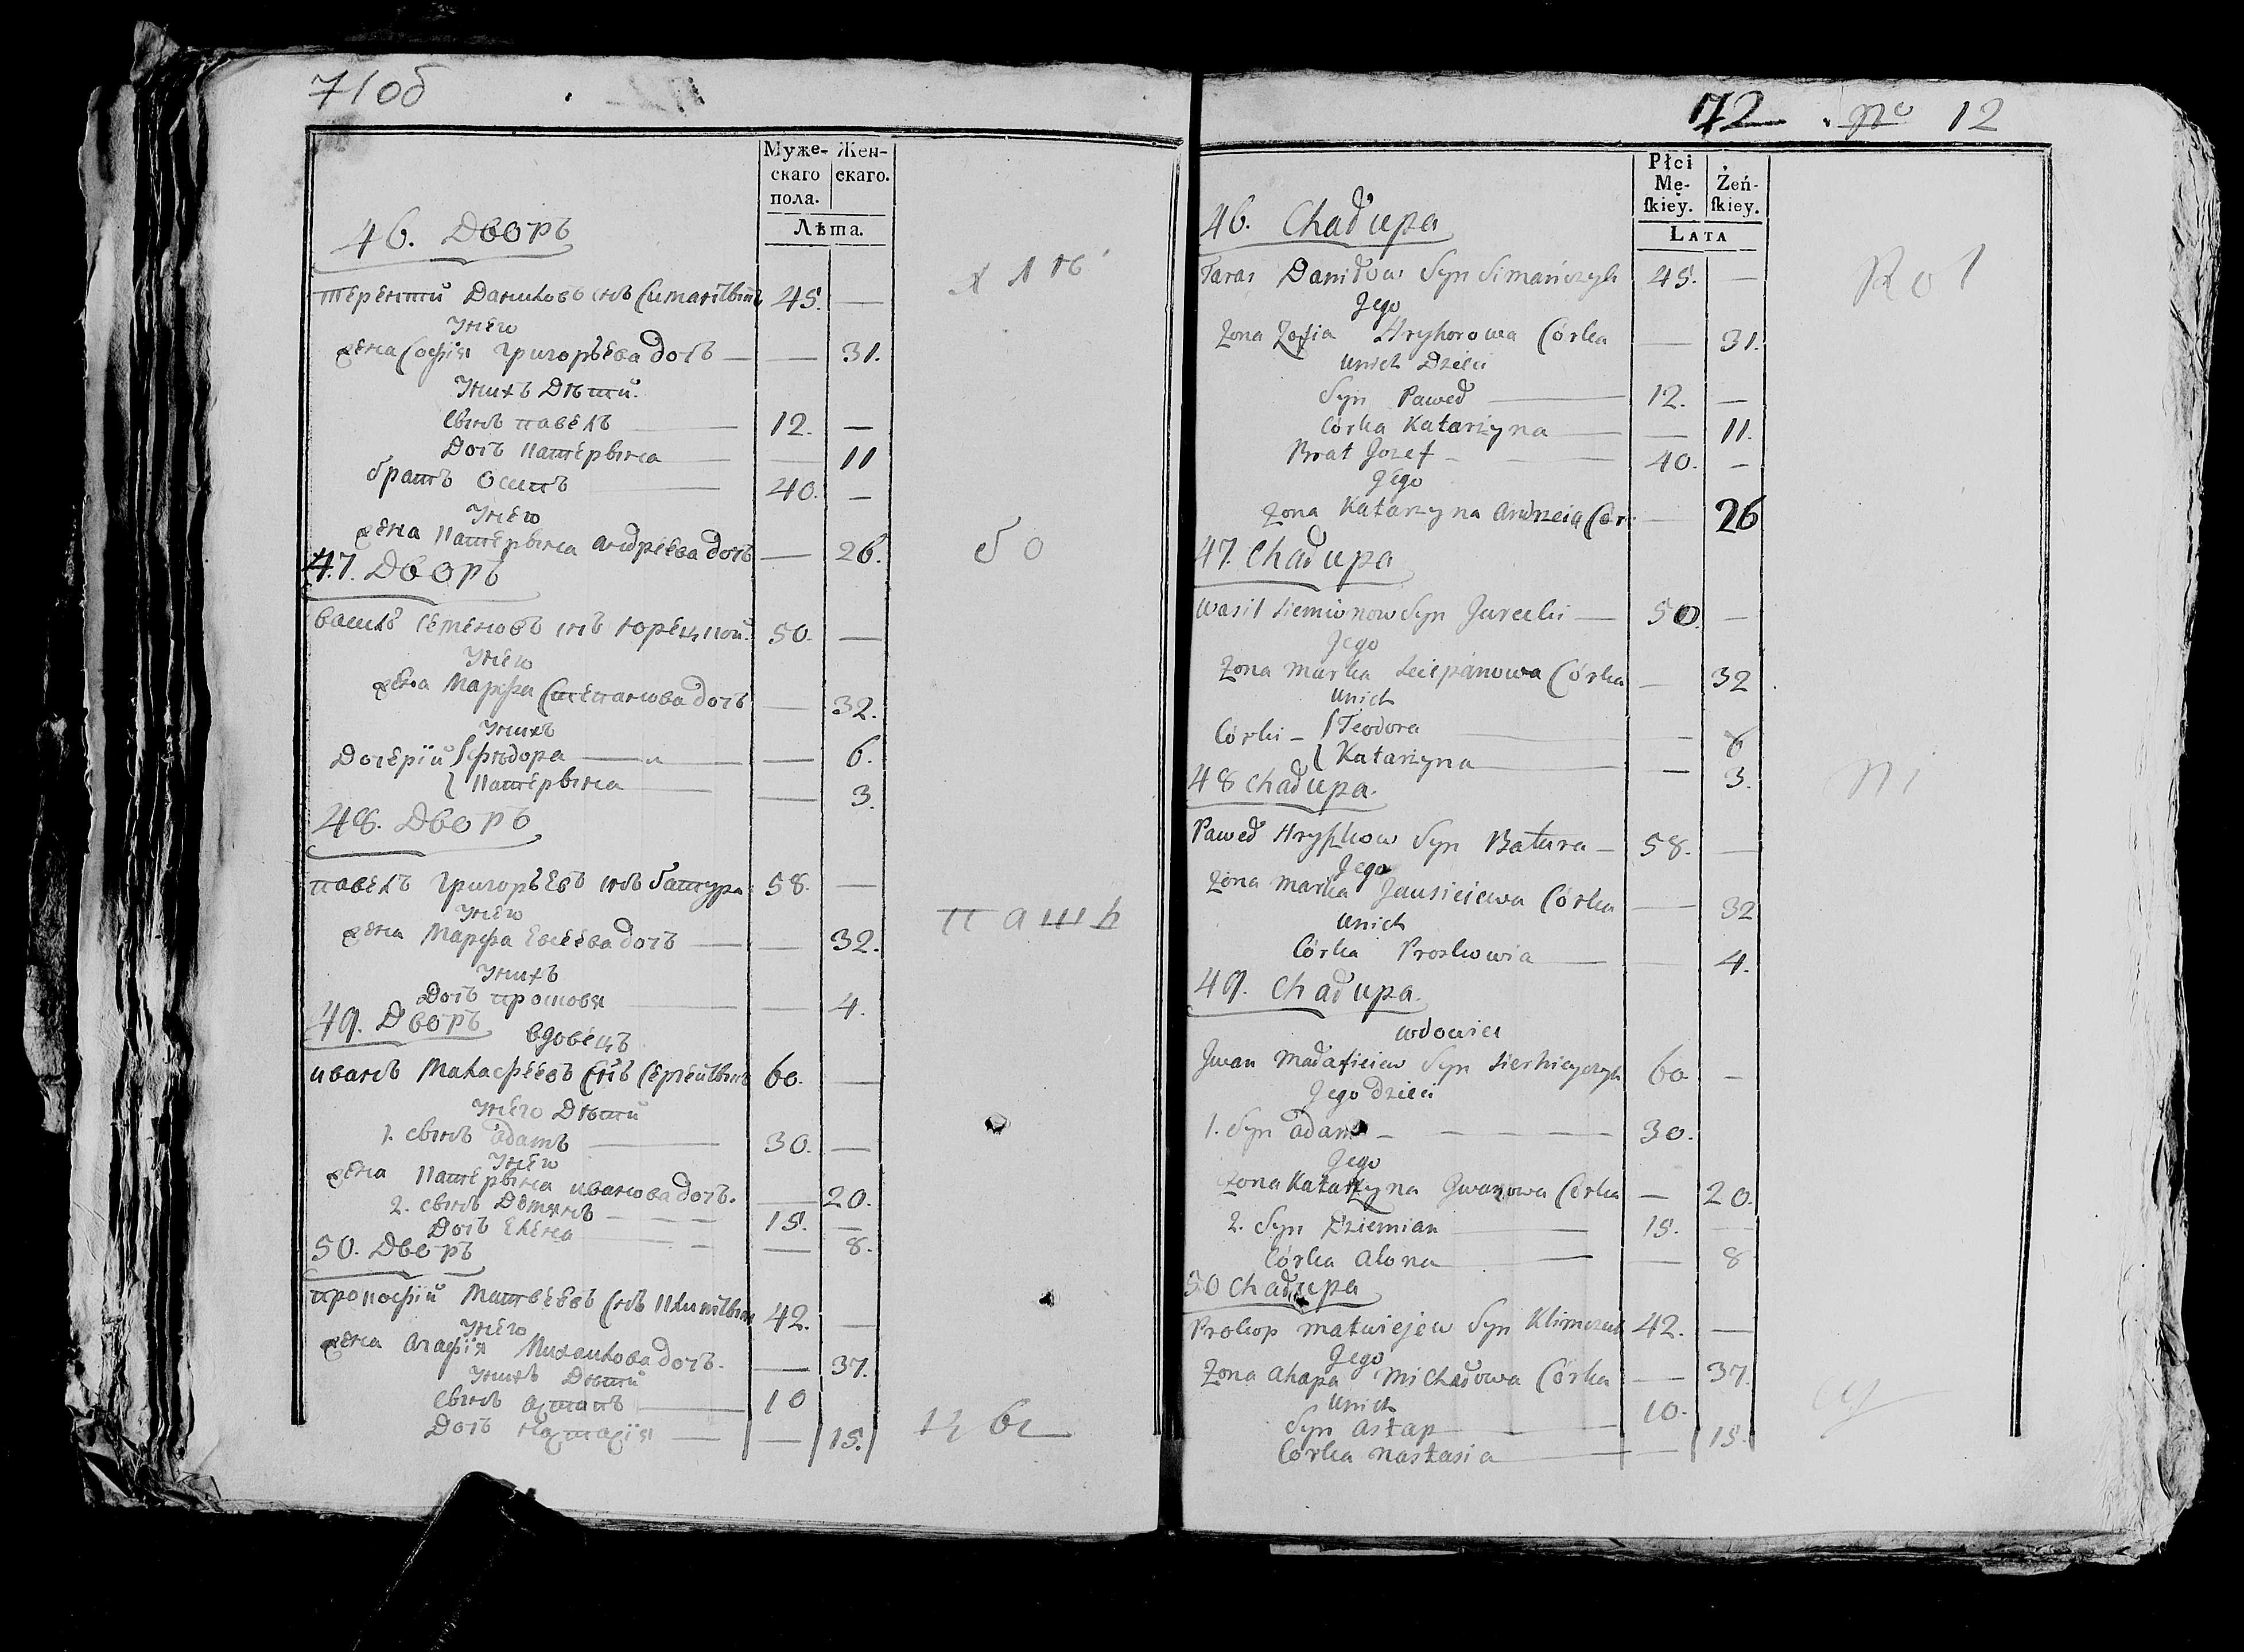 71об
Муже-
скаго
пола.
Жен-
скаго.
Лѣта.
46. Дворъ
терентий Даниловъ снъ Симанчыкъ 45. —
Унего
жена Софія Григорьева дочь — — 31.
Унихъ Дѣти.
сынъ павелъ 12. —
Дочь Катерына — 11
братъ Осипъ 40. —
Унего
жена Катерына андреева дочь — 26.
47. Дворъ
василь Семеновъ снъ Юрецкой. 50. —
Унего
жена Марфа Степанова дочь — 32.
Унихъ
Дочерій { фѣдора — — 6.
{ Катерына — 3.
48. Дворъ
павелъ Григорьевъ снъ батура 58. —
Унего
жена Марфа Евсеева дочь — — 32.
Унихъ
Дочь просковя — 4.
49. Дворъ
вдовецъ
иванъ Малафѣевъ снъ Сергейчыкъ 60. —
Унего Дѣти
1. сынъ адамъ 30. —
Унего
жена Катерына иванова дочь. — 20.
2. сынъ Демянъ 15. —
Дочь Елена — 8.
50. Дворъ
прокофій Матвѣевъ снъ Климчыкъ 42. —
Унего
жена агафія Михайлова дочь. — 37.
Унихъ Дѣти
сынъ астапъ 10
Дочь настасія — 15.
хлѣ
бо
пашь
цы
72 no 12
Płci
Mę-
ſkiey.
Żeń-
ſkiey.
LATA
46. Chałupa
Taras Daniłow Syn Simańczyk 45. —
Jego
Żona Zofia Hryhorowa Córka — 31.
Unich Dzieci
Syn Paweł 12. —
Córka Katarzyna — 11.
Brat Jozef 40. —
Jego
Żona Katarzyna Andrzeia Cór — 26
47. Chałupa
Wasil Siemionow Syn Jurecki — 50. —
Jego
Żona Marka Sciepanowa Córka — 32
Unich
Córki — { Teodora — 6
{ Katarzyna — 3.
48 Chałupa.
Paweł Hryszkow Syn Batura — 58. —
Jego
Żona Marka Jausieiewa Córka — 32
Unich
Córka Proskowia — 4.
49. Chałupa.
wdowiec
Jwan Małafieiew Syn Sierhieyczyk 60 —
Jego dzieci
1. Syn adam 30.
Jego
Żona Katarzyna Jwanowa Córka — 20.
2. Syn Dziemian 15. —
Córka Alona — 8
50 Chałupa
Prokop Matwiejew Syn Klimczuk 42. —
Jego
Żona Ahapa Michałowa Córka — 37.
Unich
Syn Astap 10.
Córka Nastasia — 15.
Rol
ni
cy